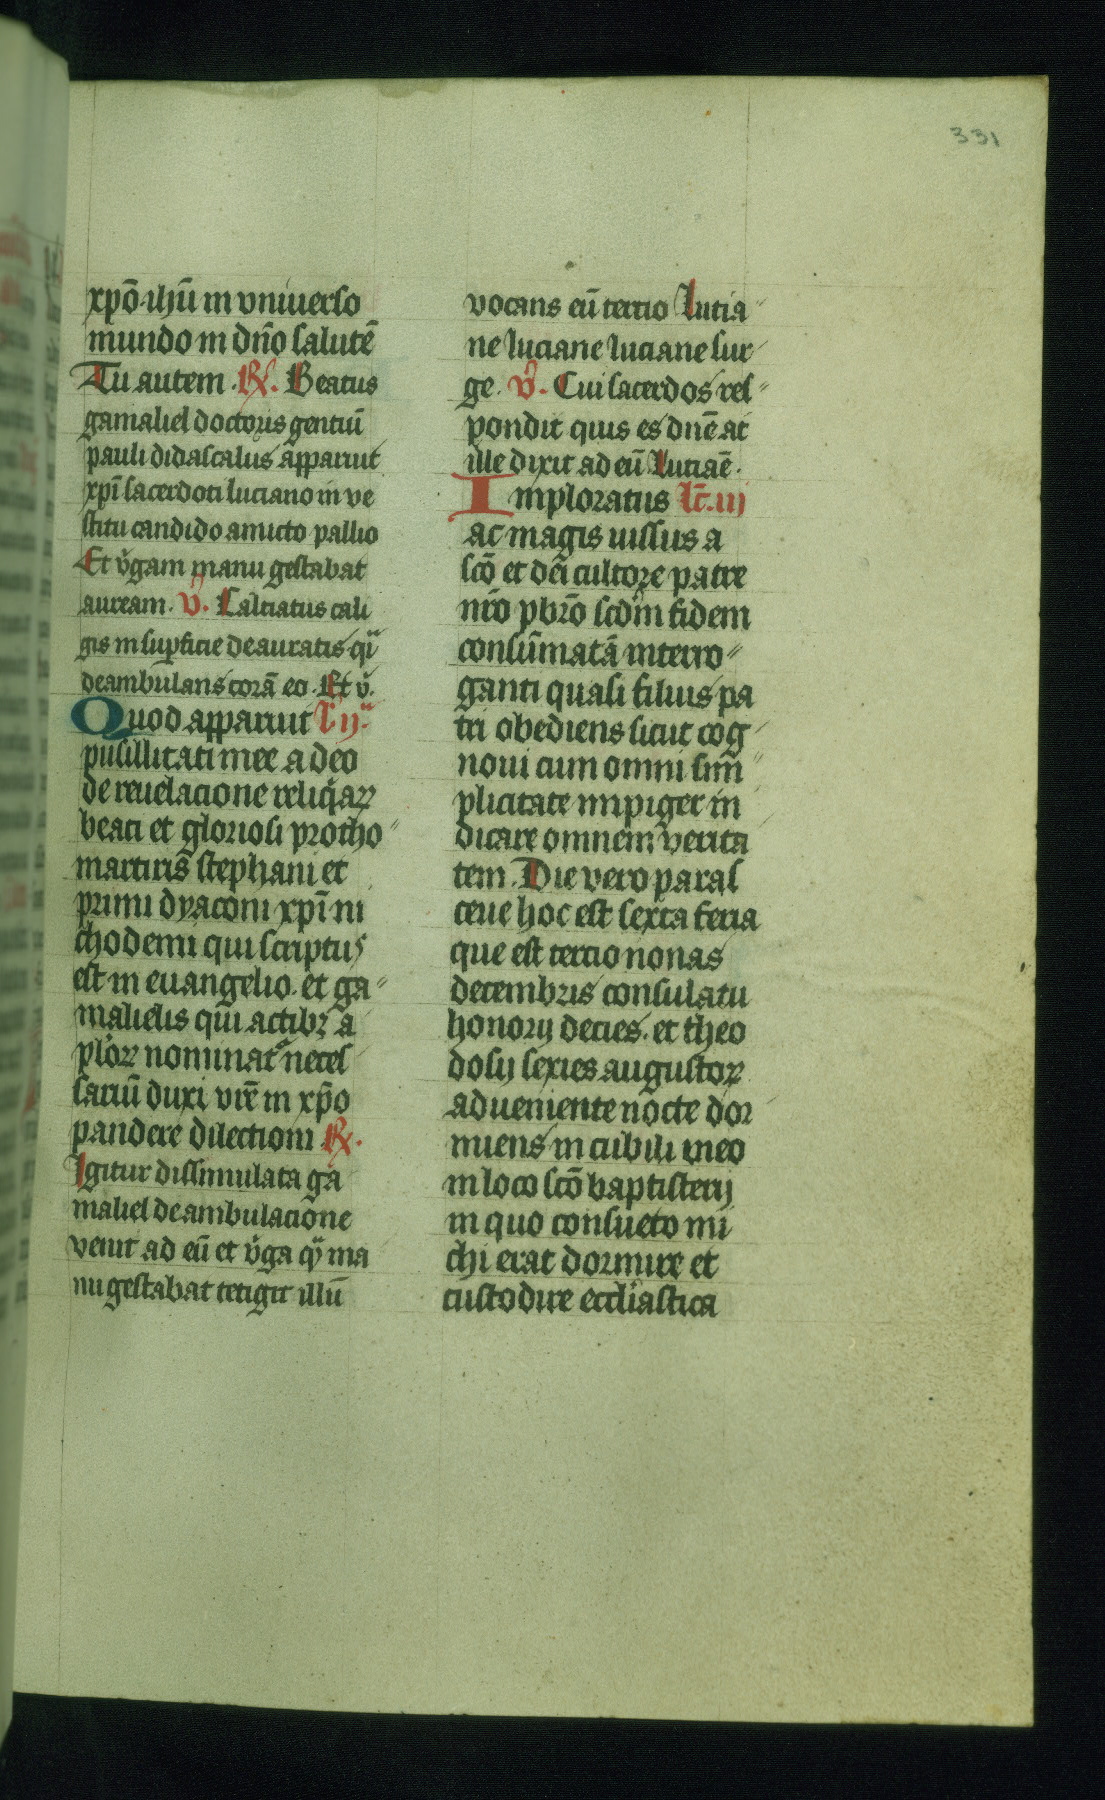 331
xpō ihū in vniuerso
mundo in dn̄o salutē
Tu autem . R̸. Beatus
gamaliel doctoris gentiū
pauli didascalus apparuit
xpī sacerdoti luciano in ve
stitu candido amicto pallio
Et v̾gam manu gestabat
auream. v̾. Calciatus cali
gis in sup̱ficie deauratis qͥ
deambulans corā eo . Et v̾.
Quod apparuit l̄ ij
pusillitati mee a deo
de reuelacione reliq̄aꝝ
beati et gloriosi protho
martiris stephani et
primi dyaconi xpī ni
chodemi qui scriptus
est in euangelio et ga
malielis qui actibꝫ a
p̄loꝝ nominat᷑ neces
sariū duxi vr̄e in xp̄o
pandere dilectioni R̸.
Igitur dissimulata ga
maliel deambulacione
venit ad eū et v̾ga qͣ ma
nu gestabat tetigit illū
vocans eū tercio lucia
ne luciane luciane sur
ge. v̾. Cui sacerdos res
pondit quis es dn̄e at
ille dixit ad eū luciāe.
Imploratus lc̄. iij
ac magis uissus a
scō et dei cultore patre
nr̄o pbr̄o scd̄m fidem
consūmatā interro
ganti quasi filius pa
tri obediens sicut cog
noui cum omni sim̄
plicitate impiger in
dicare omnem verita
tem. Die vero paras
ceue hoc est sexta feria
que est tercio nonas
decembris consulatu
honorij decies. et theo
dosij sexies augustoꝝ
adueniente nocte dor
miens in cubili meo
in loco scō baptisterij
in quo consueto mi
chi erat dormire et
custodire eccl̄iastica